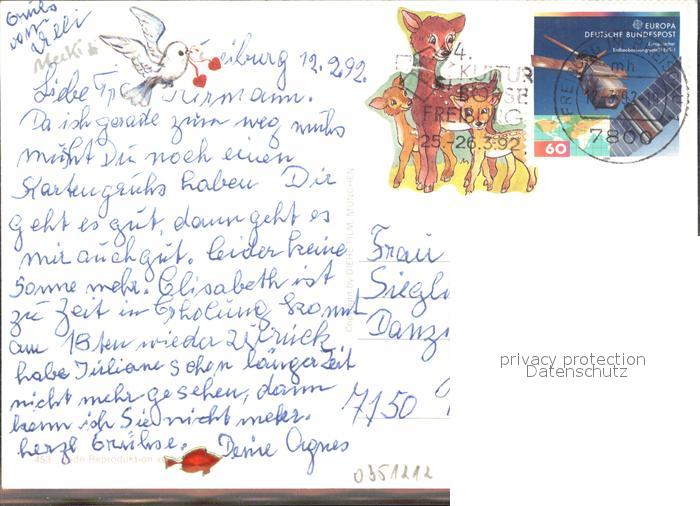 Grüße
vom
Mecki
Freiburg 12.2.92.
Liebe
Da ich gerade zum weg muhs
muhst Du noch einen
Kartengruhs haben Dir
geht es gut, dann geht es
mir auch gut. leider keine
Sonne mehr. Elisabeth ist
zu Zeit in Erholung kommt
am 18ten wieder zurück
habe Juliane schon länger Zeit
nicht mehr gesehen, dann
kann ich Sie nicht mehr.
herzl Grühse. Deine Agnes
4.
KULTUR
BÖRSE
FREIBURG
25.-26.3.92
EUROPA
DEUTSCHE BUNDESPOST
Europäischer
Erdbeobachtungssatellit ERS-1
60
FREIBURG
mh
7800
Copyright by DIEHL-FILM, MÜNCHEN
Frau
Siegl
Danzi
7150
453
Reproduktion
0351212
privacy protection
Datenschutz